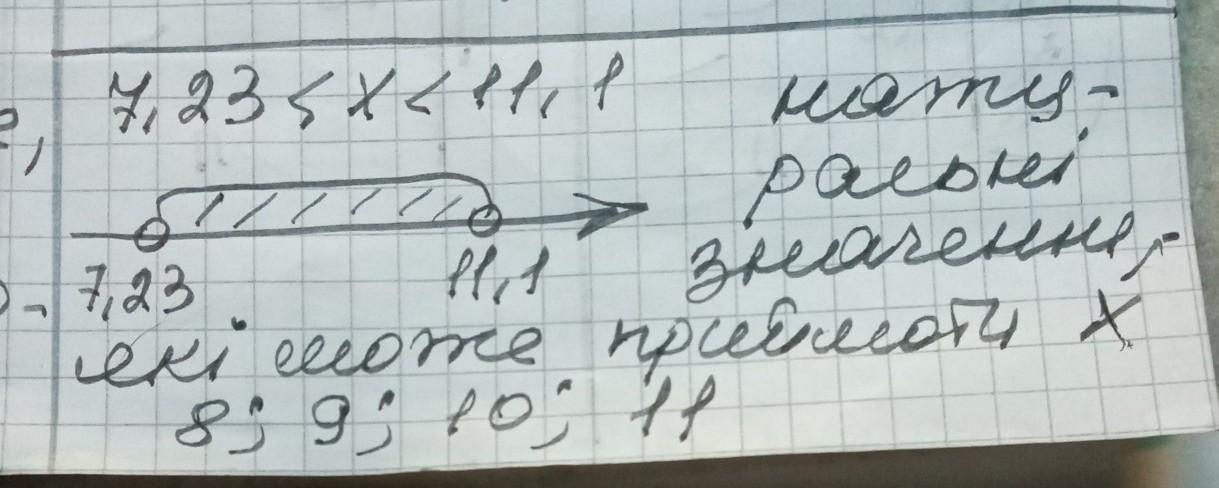 7,23 < x < 11,1 нату-
ральні
7,23 11,1 значення,
які може приймати х
8; 9; 10; 11